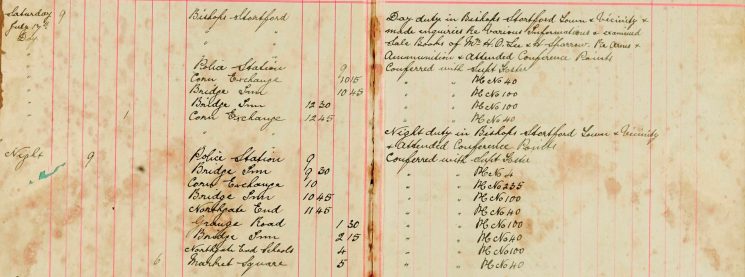 Saturday 9 Bishops Stortford Day duty in Bishops Stortford Town & Vicinity &
July 17th " made inquiries Re Various Informations & examined
Day " Sale Books of Mr H. O. Lee & H Sparrow. Re Arms &
" " Ammunition & Attended Conference Points
" Police Station 9 Conferred with Supt Foster
" Corn Exchange 10 15 " " PC No 40
" Bridge Inn 10 45 " " PC No 100
" Bridge Inn 12 30 " " PC No 100
" 1 Corn Exchange 12 45 " " PC No 40
" " Night duty in Bishops Stortford Town & Vicinity
" & Attended Conference Points
Night 9 Police Station 9 Conferred with Supt Foster
" Bridge Inn 9 30 " " PC No 4
" Corn Exchange 10 " " PC No 235
" Bridge Inn 10 45 " " PC No 100
" Northgate End 11 45 " " PC No 40
" Grange Road 1 30 " " PC No 100
" Bridge Inn 2 15 " " PC No 40
" Northgate End Schools 4 " " PC No 100
" 6 Market Square 5 " " PC No 40